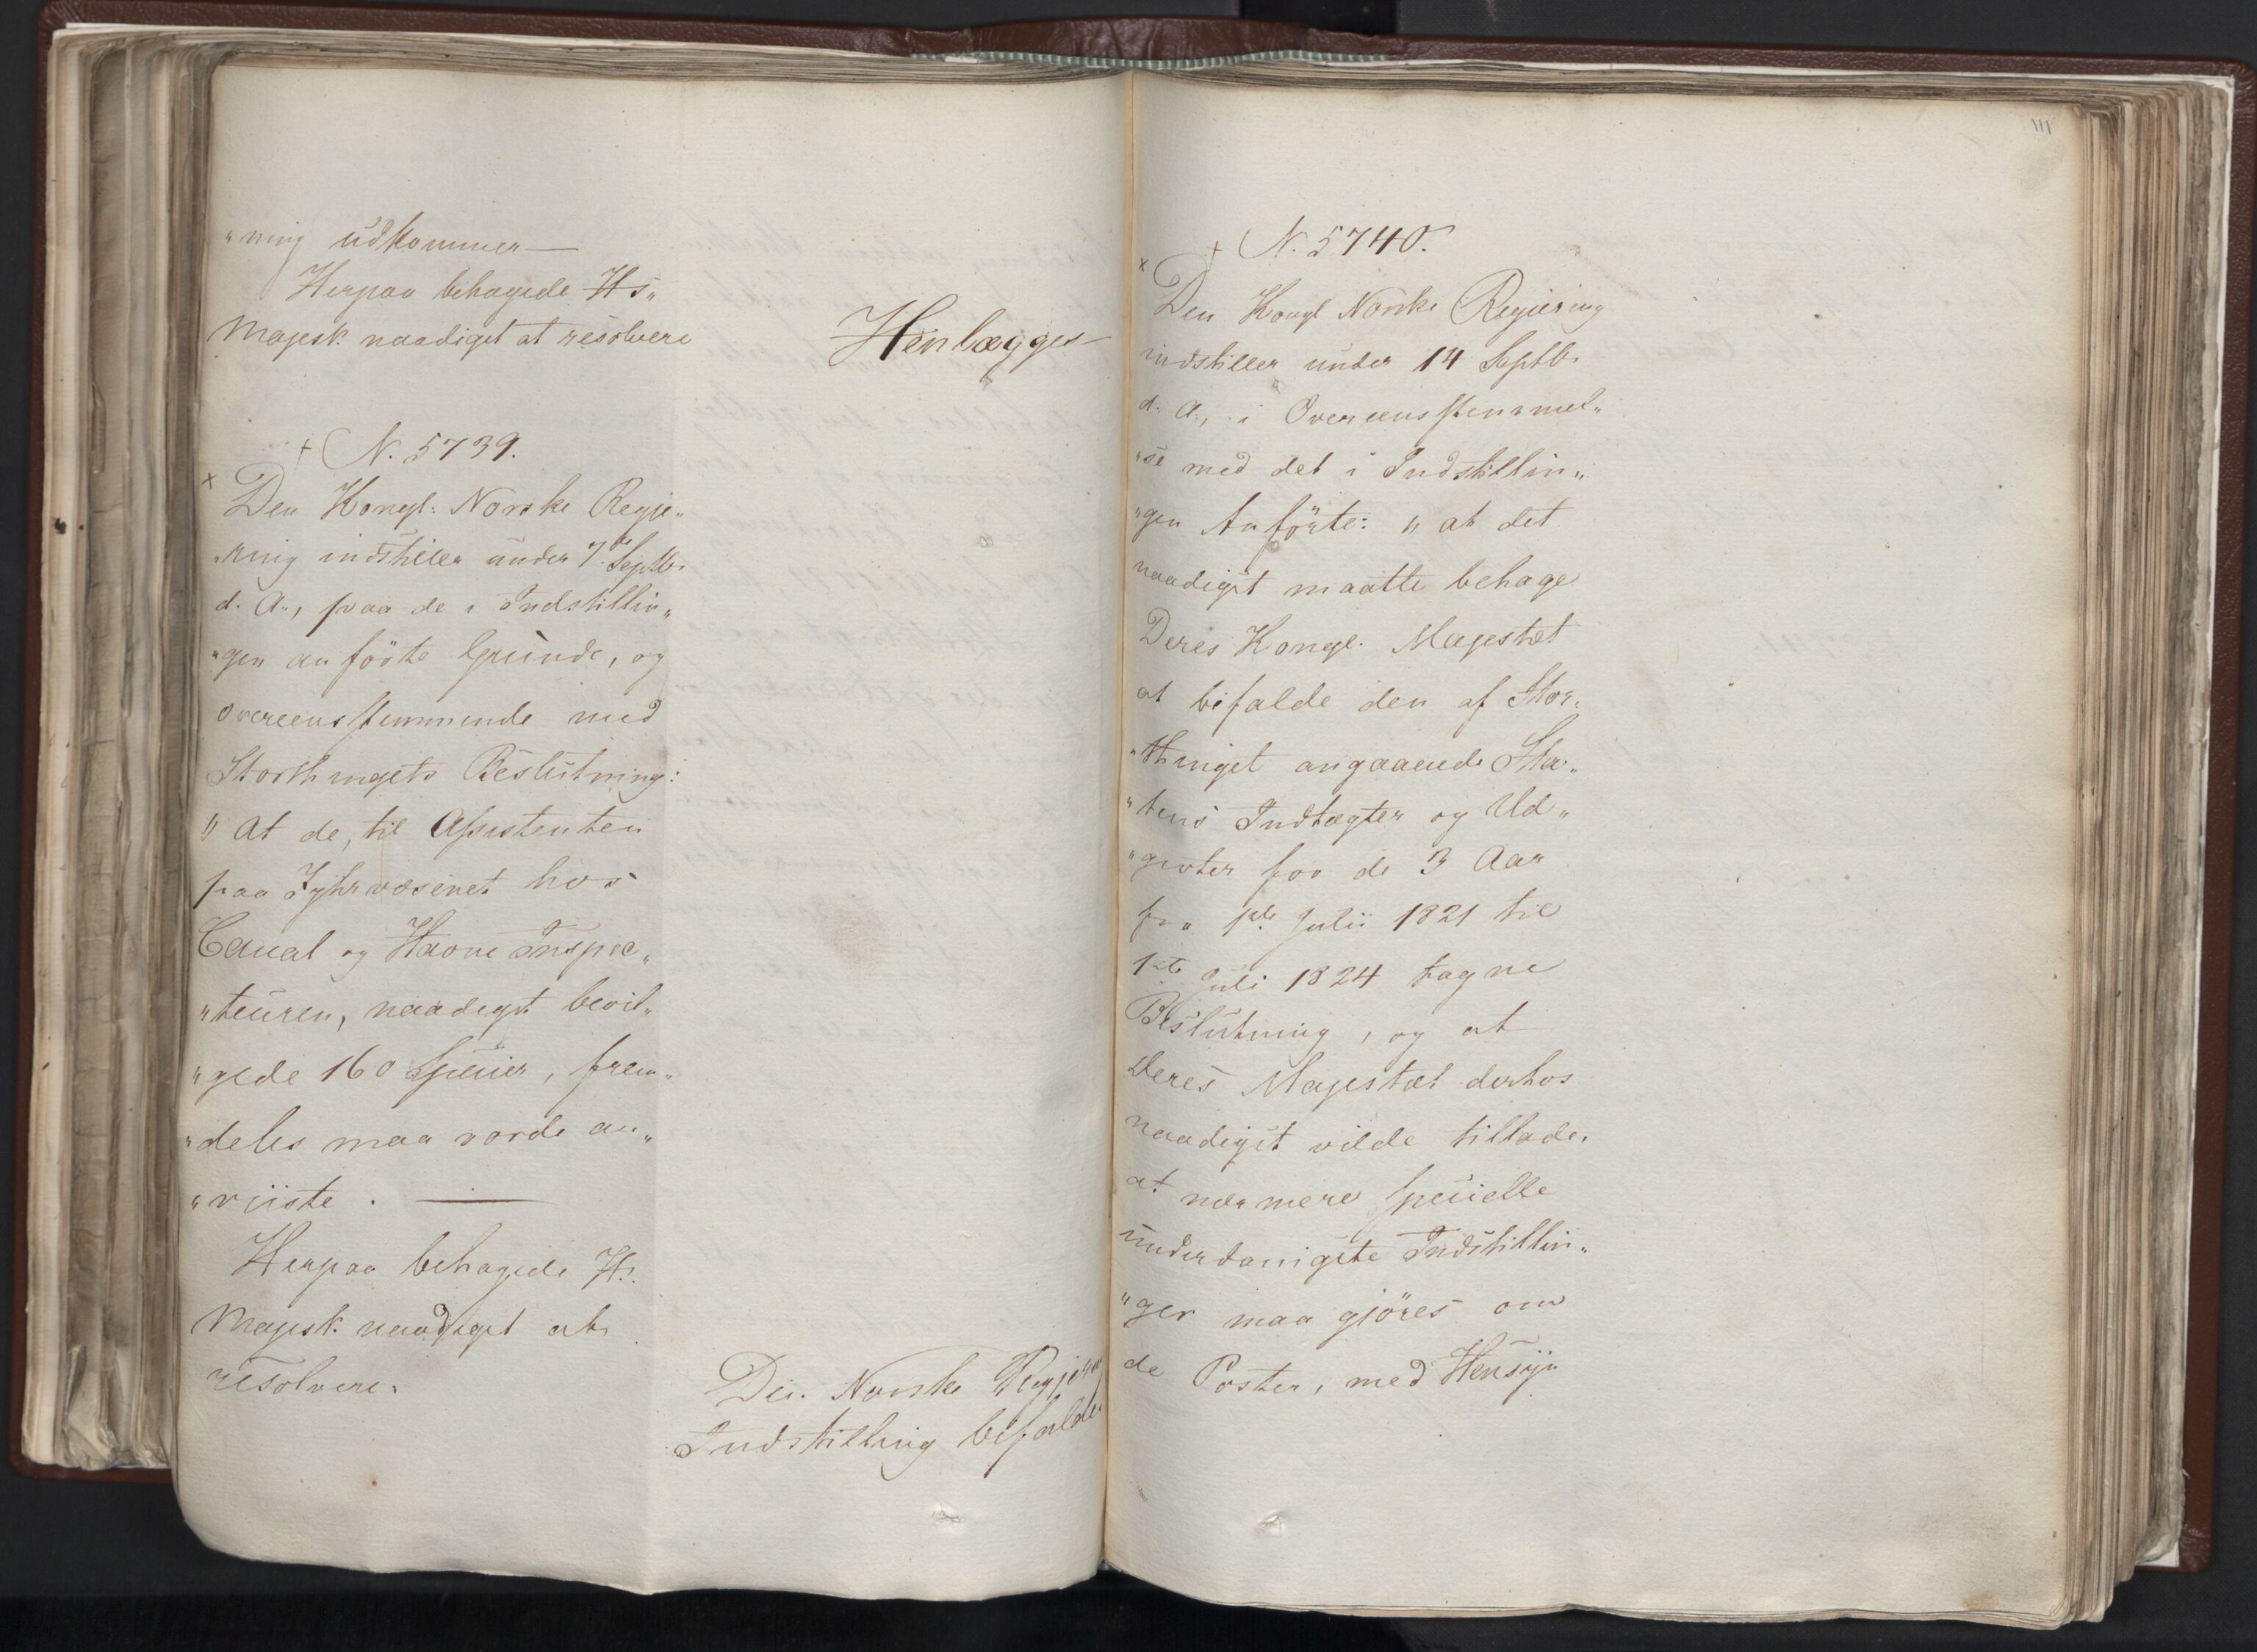 „ning udkommer—
Herpaa behagede Hs„
Majest. naadigst at resolvere
Henlægges
+ N. 5739.
x
Den Kongl: Norske Regje„
„ring indstiller under 7de Septbr.
d. A., paa de i Indstillin„
„gen anförte Grunde, og
overeensstemmende med
Storthingets Beslutning:
" at de, til Assistenten
paa Fyhrvæsenet hos
Canal og Havne Inspec„
„teuren, naadigst bevil„
„gede 160 Specier, frem„
„deles maa vorde an„
„viiste. —
Herpaa behagede Hs.
Majest. naadigst at
resolvere.
Den Norske Regjerings
Indstilling bifaldes
111
+ N. 5740.
x
Den Kongl Norske Regjering
indstiller under 14 Septbr.
d. A., i Overeensstemmel„
„se med det i Indstillin„
„gen Anförte: " at det
naadigst maatte behage
Deres Kongl. Majestæt
at bifalde den af Stor„
„thinget angaaende Sta„
„tens Indtægter og Ud„
„givter for de 3 Aar
fra 1ste Julii 1821 til
1ste Juli 1824 tagne
Beslutning, og at
Deres Majestæt derhos
naadigst vilde tillade,
at nærmere specielle
underdanigste Indstillin„
„ger maa gjöres om
de Poster, med Hensyn